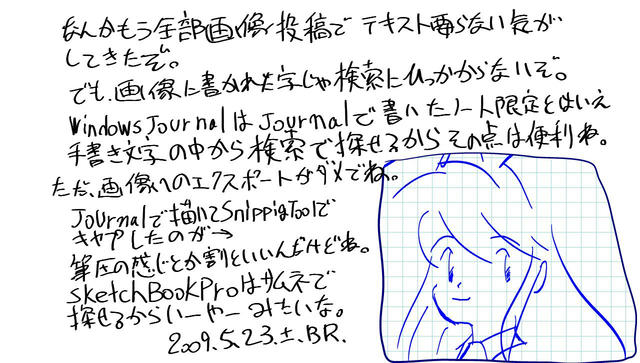 なんかもう全部画像投稿で テキスト要らない気が
してきたぞ。
でも、画像に書かれた字じゃ検索にひっかからないぞ。
Windows JournalはJournalで書いたノート限定とはいえ
手書き文字の中から検索で探せるからその点は便利ね。
ただ、画像へのエクスポートがダメでね。
Journalで描いてSnippigToolで
キャプしたのが→
筆圧の感じとか割といいんだけどね。
SketchBookProはサムネで
探せるからいーやーみたいな。
2009.5.23.土.BR.